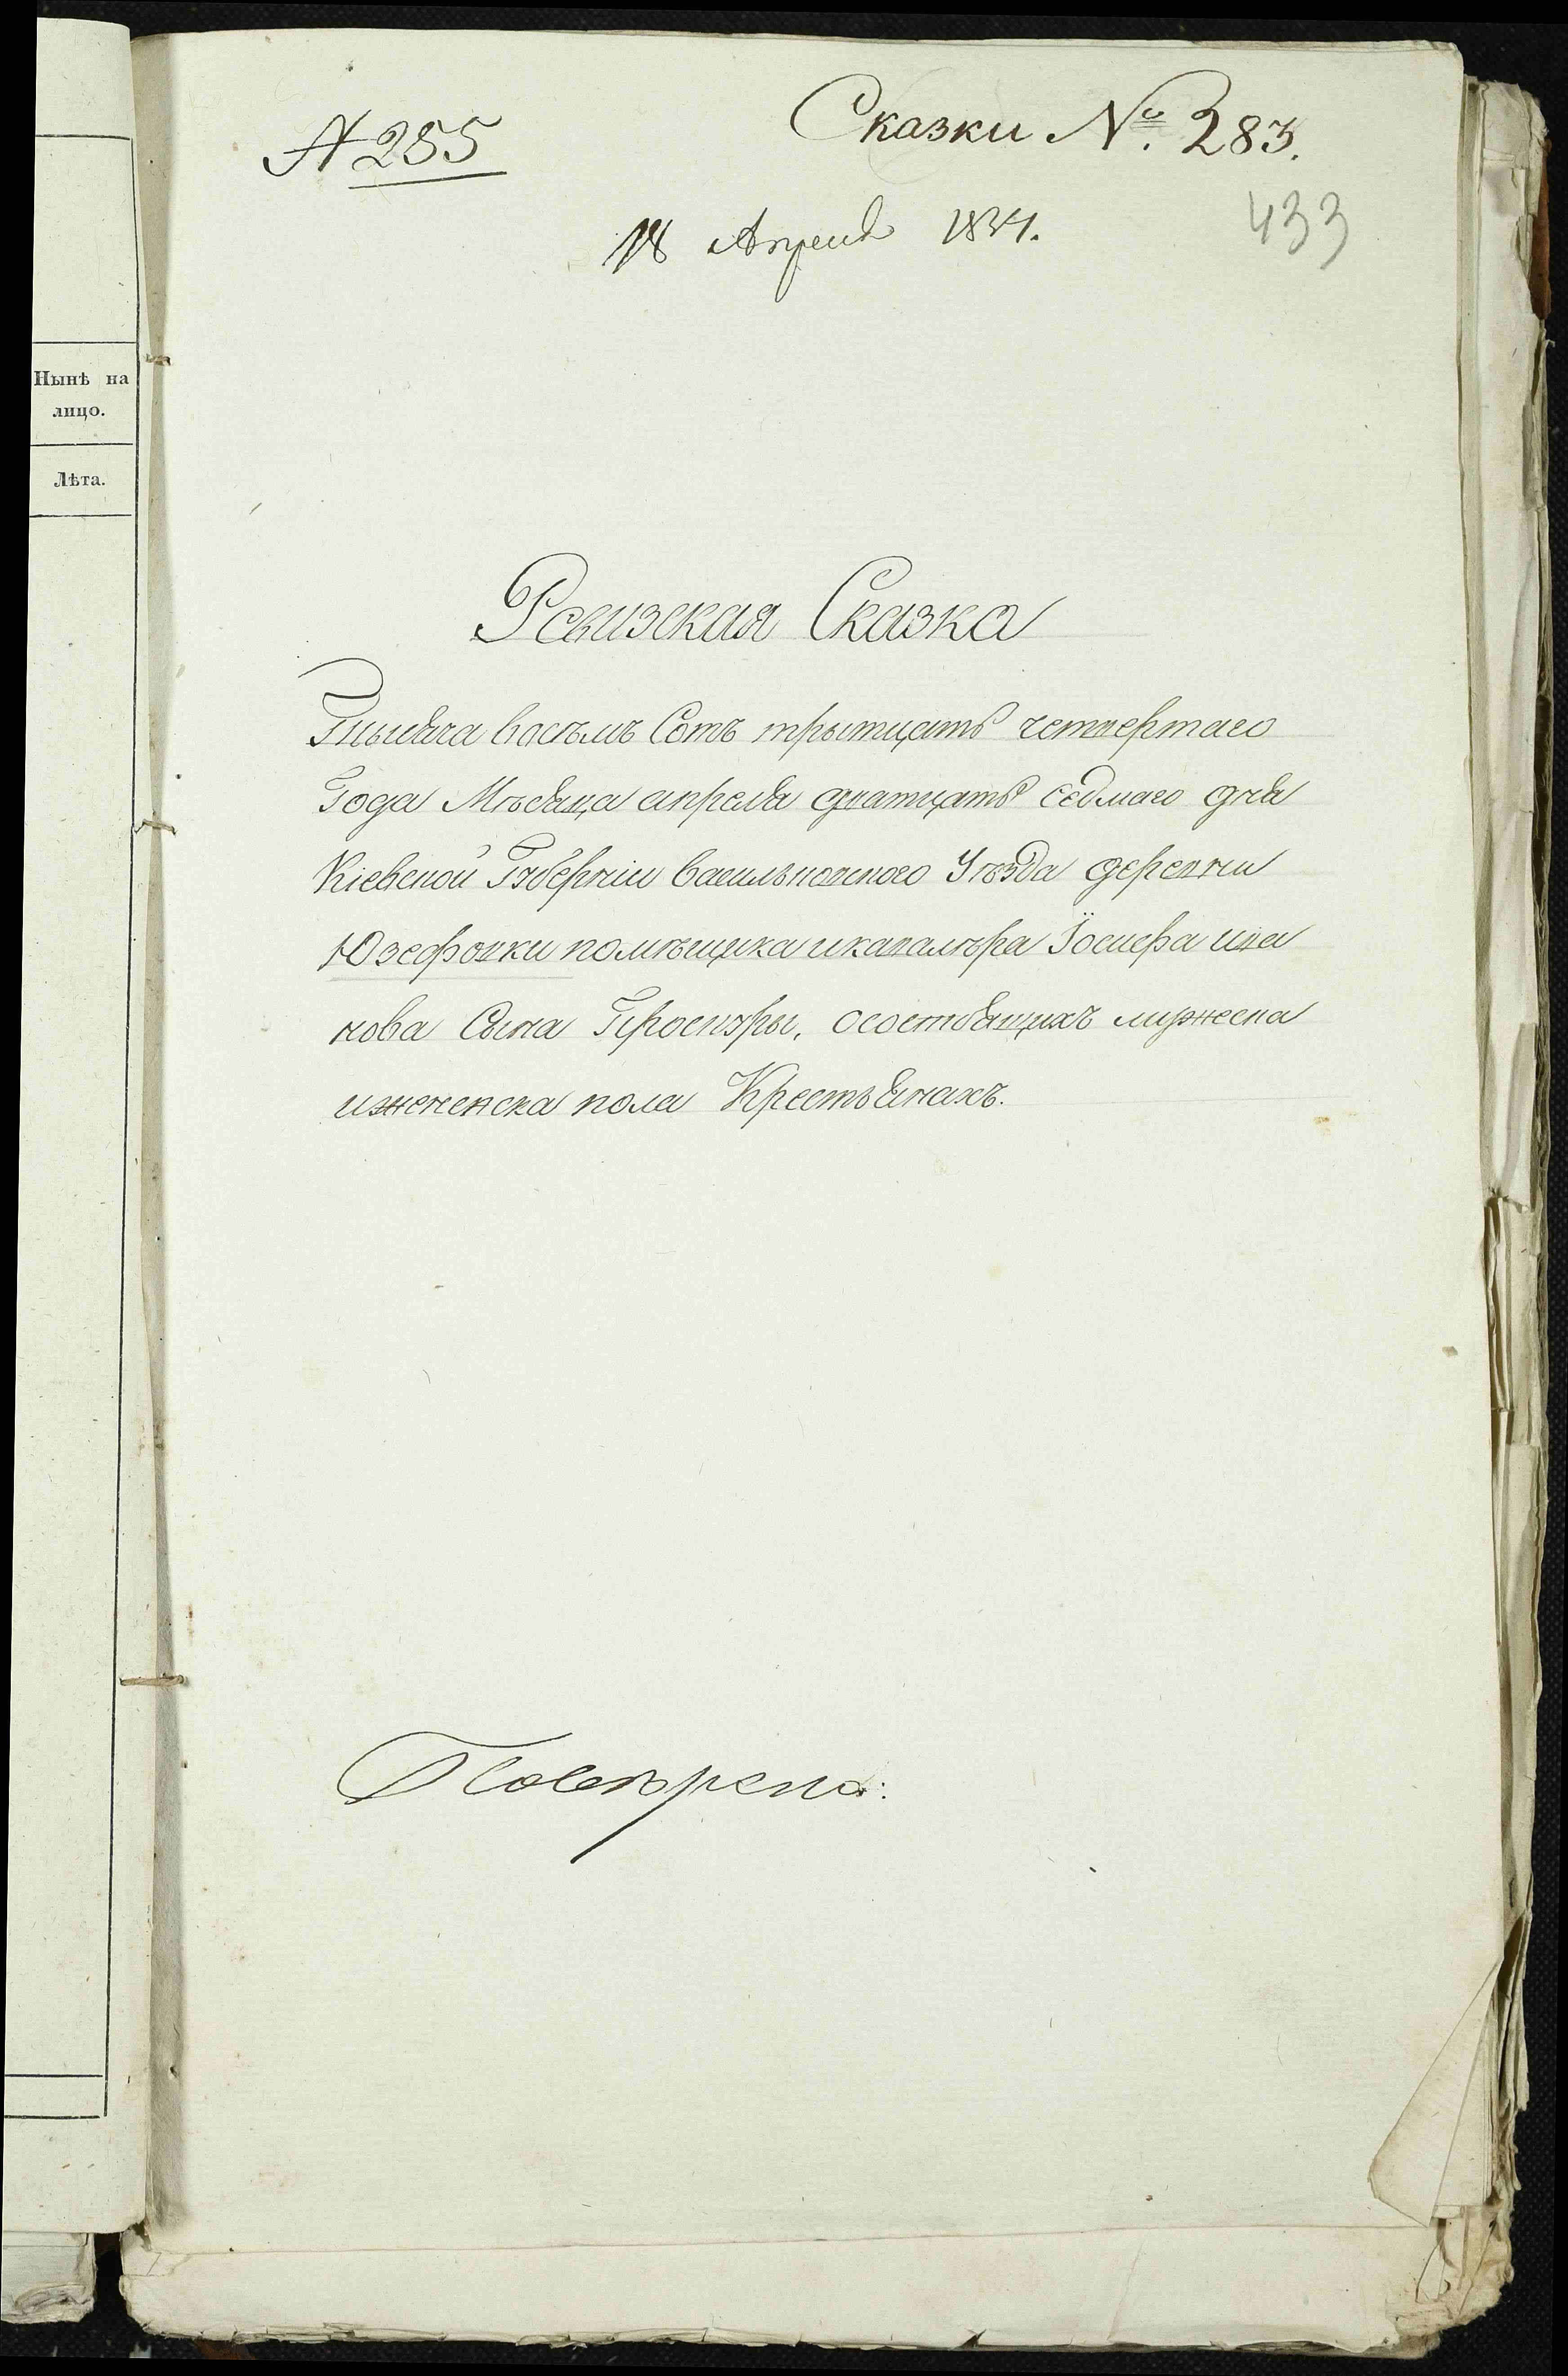 А 285
Сказки №. 283.
18 Апреля 1834.
433
Нынѣ на
лицо.
Лѣта.
Ревизская Сказка
Тысяча восемъ Сотъ трытцать четвертаго
Года Мѣсяца апреля дватцать седмаго дня
Кіевской Губерніи васильковского Уѣзда деревни
Юзефовки помѣщика икавалѣра Іосифа ива
нова Сына Проскуры, осостоящихъ мужеска
иженска пола Крестьянахъ.
Повѣрена: